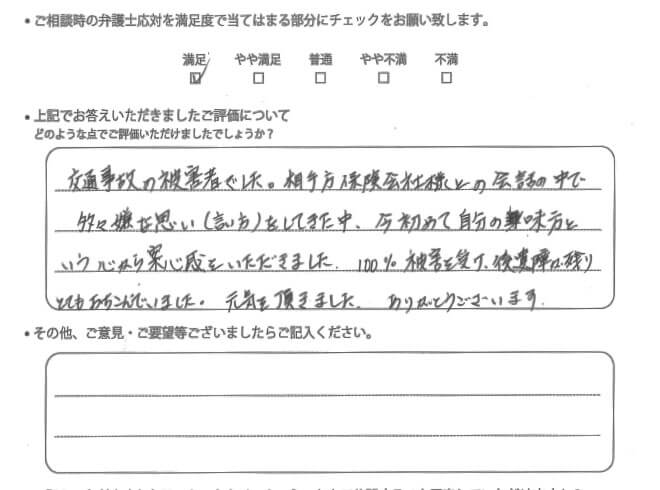 • ご相談時の弁護士応対を満足度で当てはまる部分にチェックをお願い致します。
満足 やや満足 普通 やや不満 不満
• 上記でお答えいただきましたご評価について
どのような点でご評価いただけましたでしょうか？
交通事故の被害者でした。相手方保険会社様との会話の中で
多々嫌な思い（言い方）をしてきた中、今初めて自分の味方と
いう心から安心感をいただきました。100％被害を受け、後遺障が残り
とてもおちこんでいました。元気を頂きました。ありがとうございます。
• その他、ご意見・ご要望等ございましたらご記入ください。